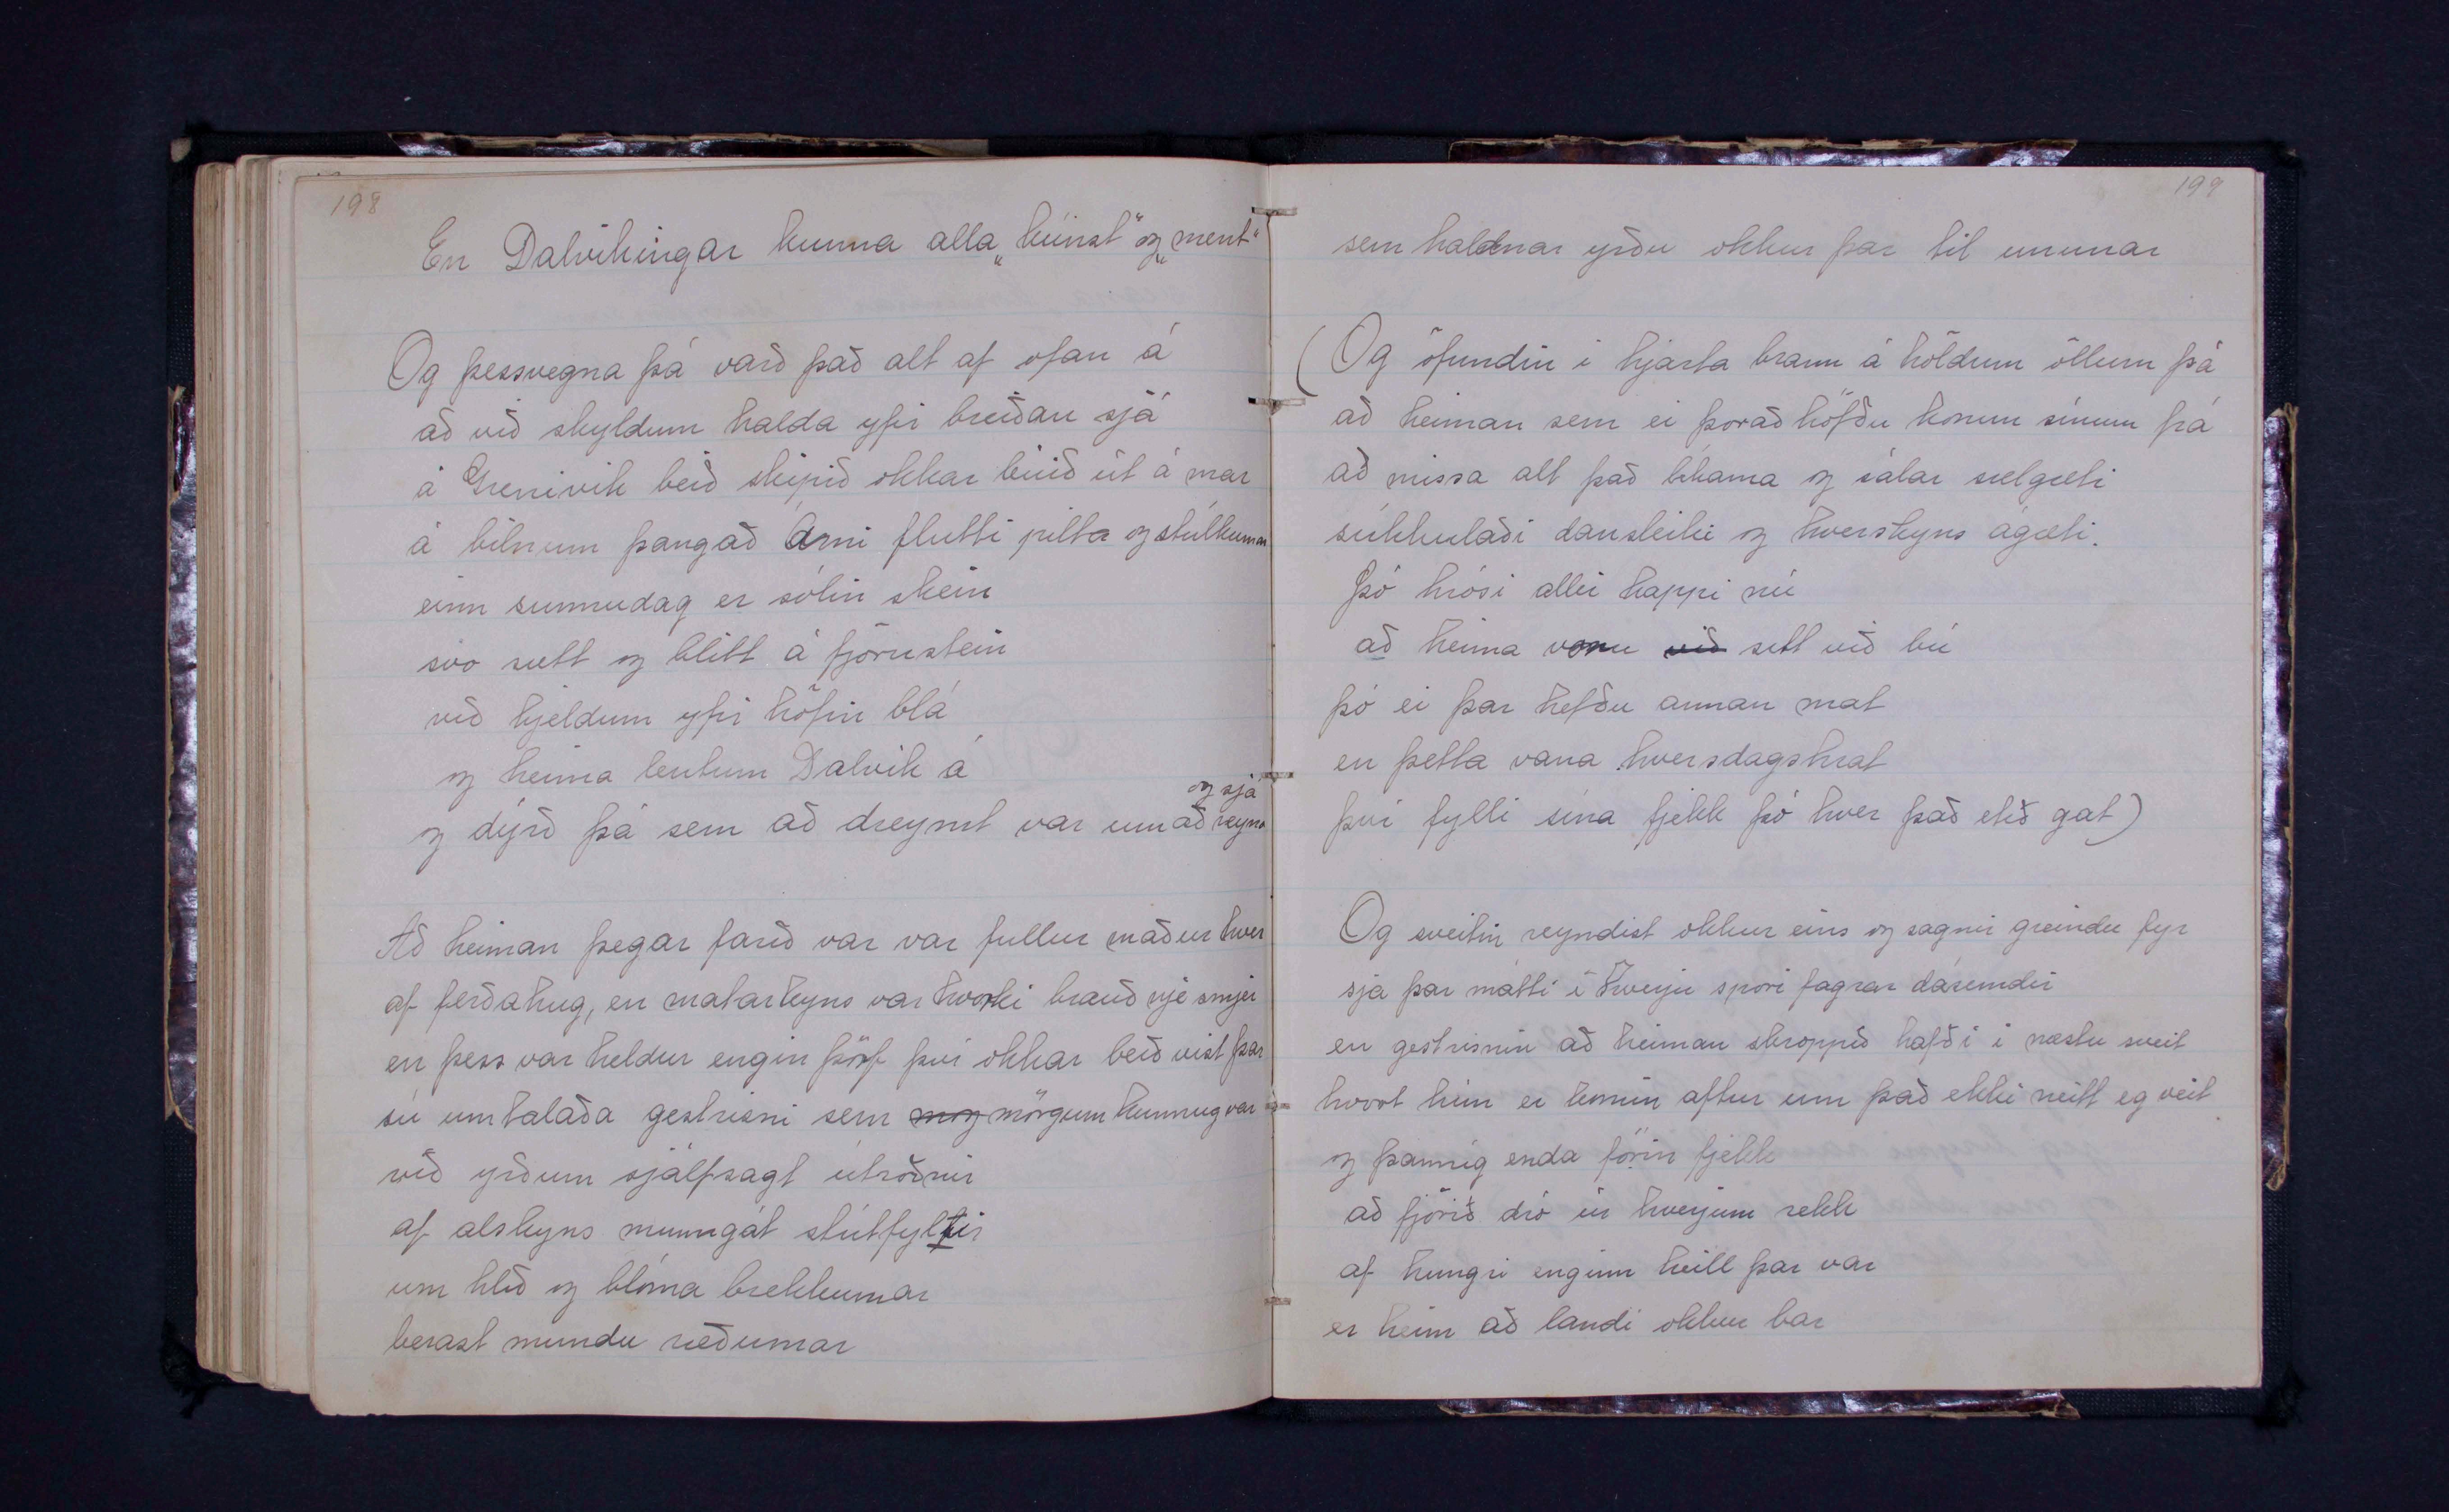 198
En Dalvikingar kunna alla „kúnst" og „ment"
Og þessvegna þá varð það alt af ofan á
að við skyldum halda yfir breiðan sjá
á Grenivik beið skipið okkar búið út á mar
á bilnum þangað Árni flutti pilta og stúlkurnar
einn sunnudag er sólin skein
svo sætt og blítt á fjörustein
við hjeldum yfir höfin blá
og heima lentum Dalvik á
og sjá
og dýrð þá sem að dreymt var um að reyna
Að heiman þegar farið var var fullur maður hver
af ferðahug, en matarkyns var hvorki brauð nje smjer
en þess var heldur engin þörf því okkar beið vist þar
sú umtalaða gestrisni sem mörgum kunnug var
við yrðum sjálfsagt útroðnir
af alskyns munngát stútfyltir
um hlíð og blóma brekkurnar
berast mundu ræðurnar
199
sem haldnar yrðu okkur þar til ununar
(Og öfundin i hjarta brann á höldum öllum þá
að heiman sem ei þorað höfðu konum sínum frá
að missa alt það líkama og sálar sælgæti
súkkulaði dansleiki og hverskyns ágæti.
Þó hrósi allir happi nú
að heima voru við sett við bú
þó ei þar hefðu annan mat
en þetta vana hversdagshrat
því fylli sína fjekk þó hver það etið gat)
Og sveitin reyndist okkur eins og sagnir greindu fyr
sjá þar mátti i hverju spori fagrar dásemdir
en gestrisnin að heiman skroppið hafði i næstu sveit
hvort hún er komin aftur um það ekki neitt eg veit
og þannig enda förin fjekk
að fjörið dró úr hverjum rekk
af hungri enginn heill þar var
er heim að landi okkur bar